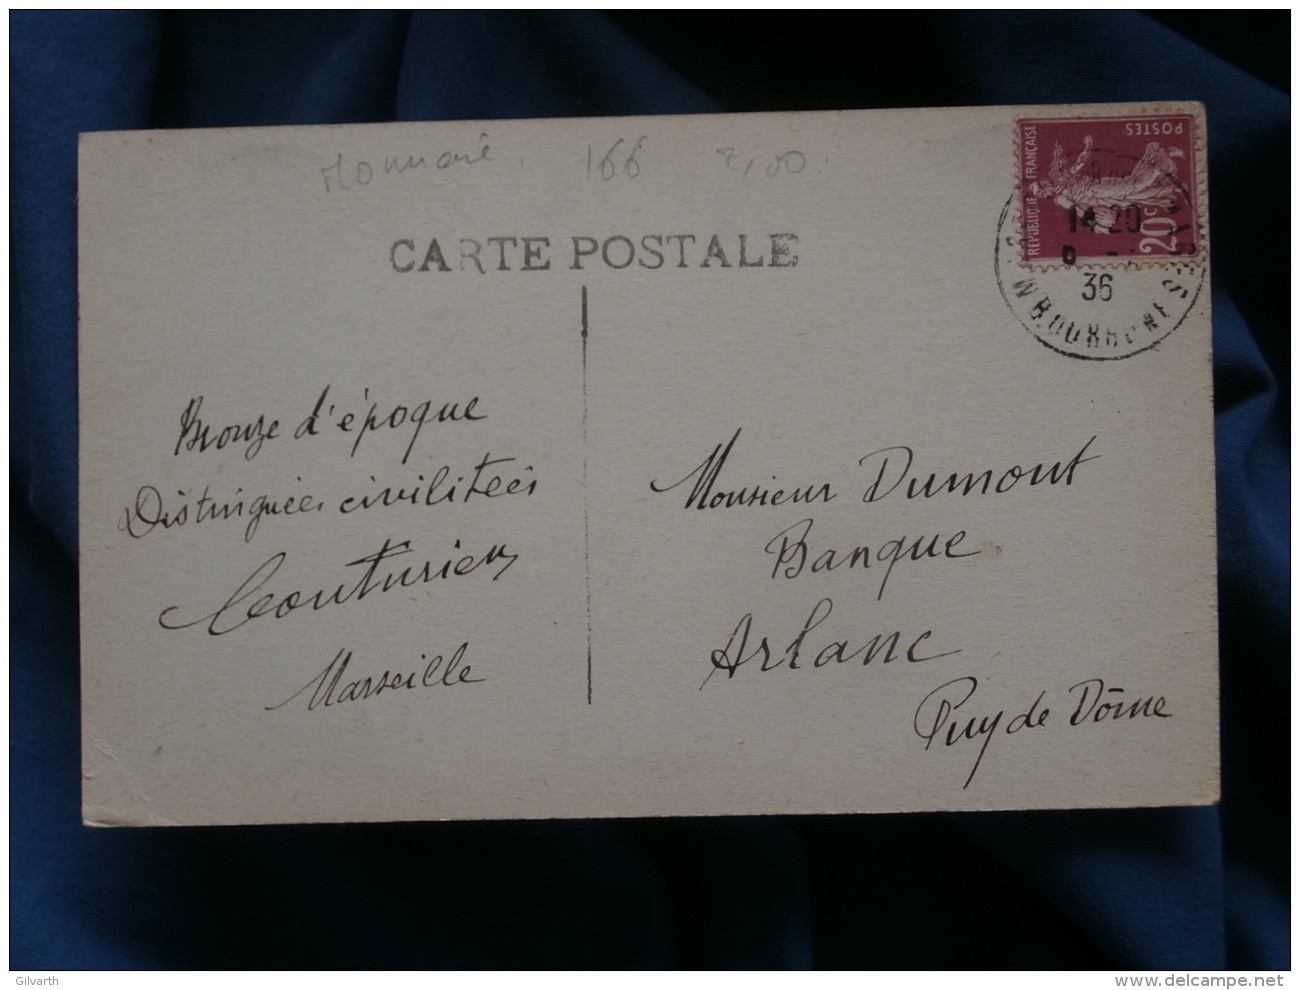 166 2,00
CARTE POSTALE
RÉPUBLIQUE FRANÇAISE
POSTES
20c
14 20
36
Bronze d'époque
Distinguées civilitées
Couturier
Marseille
Monsieur Dumont
Banque
Arlanc
Puy de Dôme
Gilvarth
www.delcampe.net